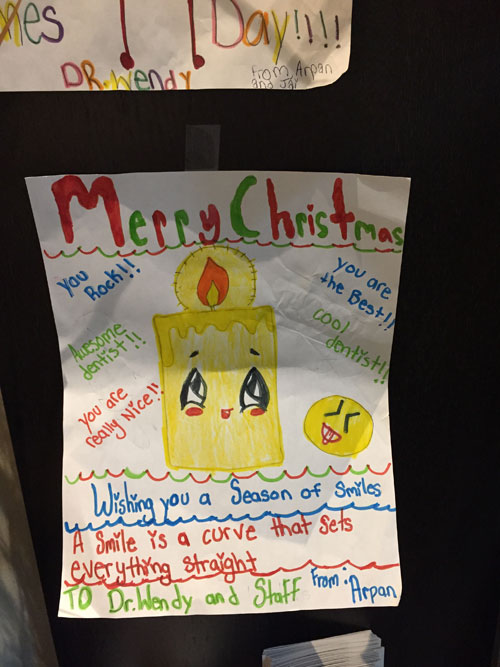 Day!!!!
DR. Wendy
from Arpan
and Jai
Merry Christmas
You
Rock!!
you are
the Best!!
Awesome
dentist!!
cool
dentist!!
you are
really Nice!!
Wishing you a Season of Smiles
A Smile is a curve that sets
everything straight
TO Dr. Wendy and Staff
From: Arpan